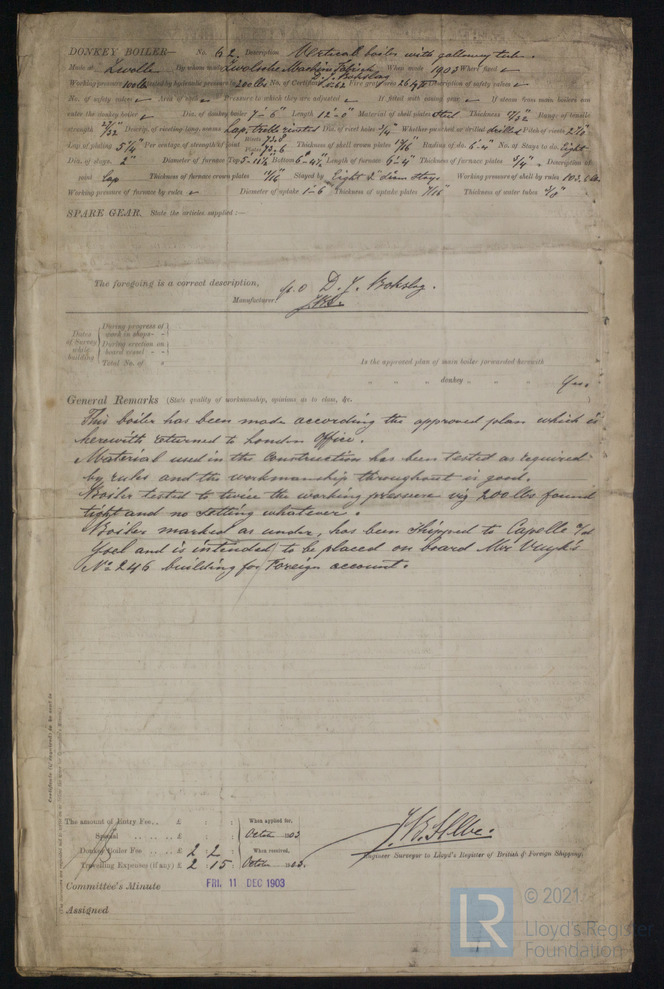 DONKEY BOILER— No. 62. Description Vertical boiler with galloway tubes.
Made at Zwolle By whom made Zwolsche Machine Fabriek When made 1903 Where fixed ✓
D. J. Bokslag
Working pressure 100 lbs tested by hydraulic pressure to 200 lbs No. of Certificate Fire grate area 26 sq ft Description of safety valves ✓
No. of safety valves ✓ Area of each ✓ Pressure to which they are adjusted ✓ If fitted with easing gear ✓ If steam from main boilers can
enter the donkey boiler ✓ Dia. of donkey boiler 7'-6" Length 12'-0" Material of shell plates steel Thickness Range of tensile
strength Descrip. of riveting long. seams Lap, treble riveted Dia. of rivet holes Whether punched or drilled drilled Pitch of rivets
Lap of plating 5 1/4" Per centage of strength of joint Rivets 73.8 Thickness of shell crown plates Radius of do. 6'-4" No. of Stays to do. Eight
Plates 73.6
Dia. of stays. 2" Diameter of furnace Top Bottom Length of furnace 6'-4" Thickness of furnace plates Description of
joint Lap Thickness of furnace crown plates Stayed by Eight 2" diam stays Working pressure of shell by rules
Working pressure of furnace by rules ✓ Diameter of uptake 1'-6" Thickness of uptake plates Thickness of water tubes
SPARE GEAR. State the articles supplied:—
The foregoing is a correct description,
D. J. Bokslag.
Manufacturer.
Dates of Survey while building
During progress of work in shops - -
During erection on board vessel - -
Total No. of
Is the approved plan of main boiler forwarded herewith
" " " donkey " " " Yes.
General Remarks (State quality of workmanship, opinions as to class, &c.
This boiler has been made according the approved plan which is
herewith returned to London Office.
Material used in the Construction has been tested as required
by rules and the workmanship throughout is good.
Boiler tested to twice the working pressure viz 200 lbs found
tight and no setting whatever.
Boiler marked as under, has been shipped to Capelle a/d
Ysel and is intended to be placed on board Mrs Vuyk's
No 246 building for Foreign account.
The amount of Entry Fee .. £ : :
When applied for,
Special .. .. .. £ : : Octer 1903
Donkey Boiler Fee .. .. £ 2 : 2 :
When received,
Travelling Expenses (if any) £ 2 : 15 : Octer 1903.
Engineer Surveyor to Lloyd's Register of British & Foreign Shipping.
Committee's Minute FRI. 11 DEC 1903
Assigned
LR © 2021
Lloyd's Register
Foundation